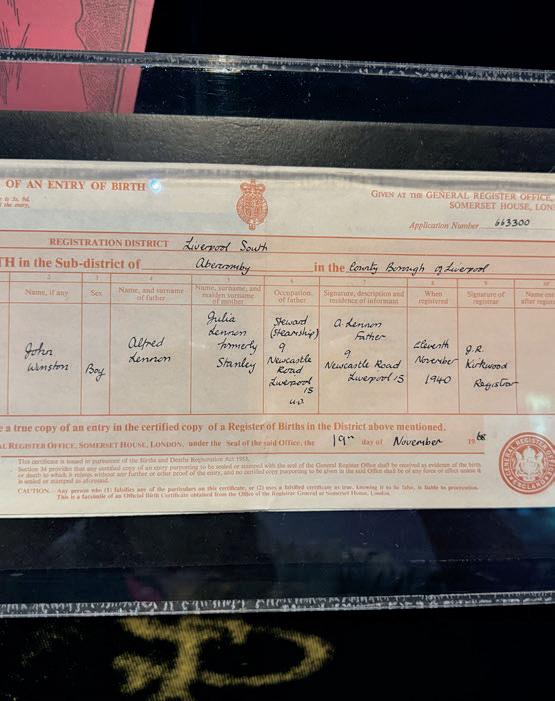 OF AN ENTRY OF BIRTH
GIVEN AT THE GENERAL REGISTER OFFICE,
SOMERSET HOUSE, LON
Application Number 663300
REGISTRATION DISTRICT Liverpool South
TH in the Sub-district of Abercromby in the County Borough of Liverpool
2 3 4 5 6 7 8 9 10
Name, if any
Sex
Name, and surname
of father
Name, surname, and
maiden surname
of mother
Occupation
of father
Signature, description and
residence of informant
When
registered
Signature of
registrar
Name
after regist
John
Winston
Boy
Alfred
Lennon
Julia
Lennon
formerly
Stanley
Steward
(Steamship)
9
Newcastle
Road
Liverpool
15
U.D.
A. Lennon
Father
9
Newcastle Road
Liverpool 15
Eleventh
November
1940
J.R.
Kirkwood
Registrar
e a true copy of an entry in the certified copy of a Register of Births in the District above mentioned.
AL REGISTER OFFICE, SOMERSET HOUSE, LONDON, under the Seal of the said Office, the 19th day of November 1968
This certificate is issued in pursuance of the Births and Deaths Registration Act 1953.
Section 34 provides that any certified copy of an entry purporting to be sealed or stamped with the seal of the General Register Office shall be received as evidence of the birth
or death to which it relates without any further or other proof of the entry, and no certified copy purporting to be given in the said Office shall be of any force or effect unless it
is sealed or stamped as aforesaid.
CAUTION.—Any person who (1) falsifies any of the particulars on this certificate, or (2) uses a falsified certificate as true, knowing it to be false, is liable to prosecution.
This is a facsimile of an Official Birth Certificate obtained from the Office of the Registrar General at Somerset House, London.
GENERAL REGISTER OFFICE